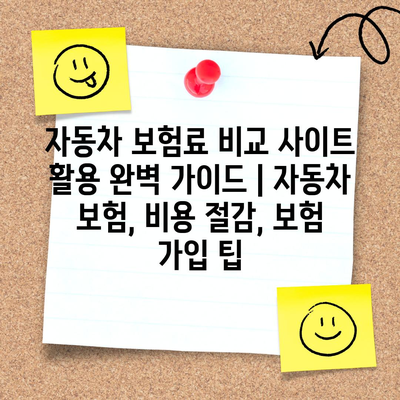 자동차 보험료 비교 사이트
활용 완벽 가이드 | 자동차
보험, 비용 절감, 보험
가입 팁